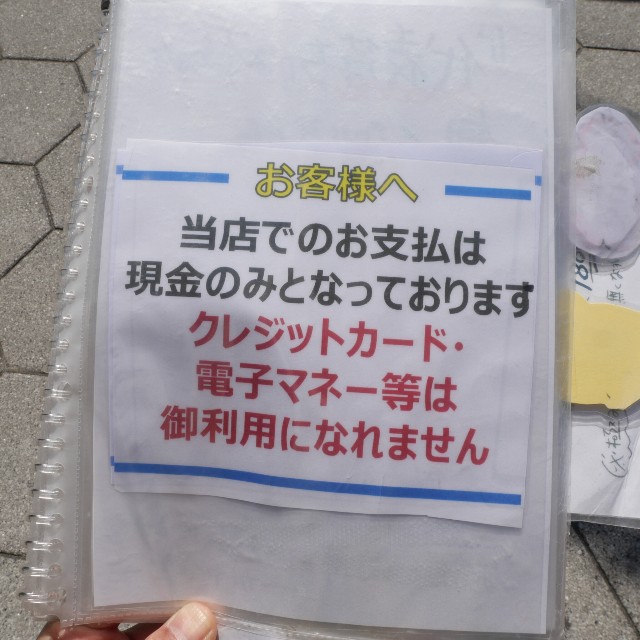 お客様へ
当店でのお支払は
現金のみとなっております
クレジットカード・
電子マネー等は
御利用になれません